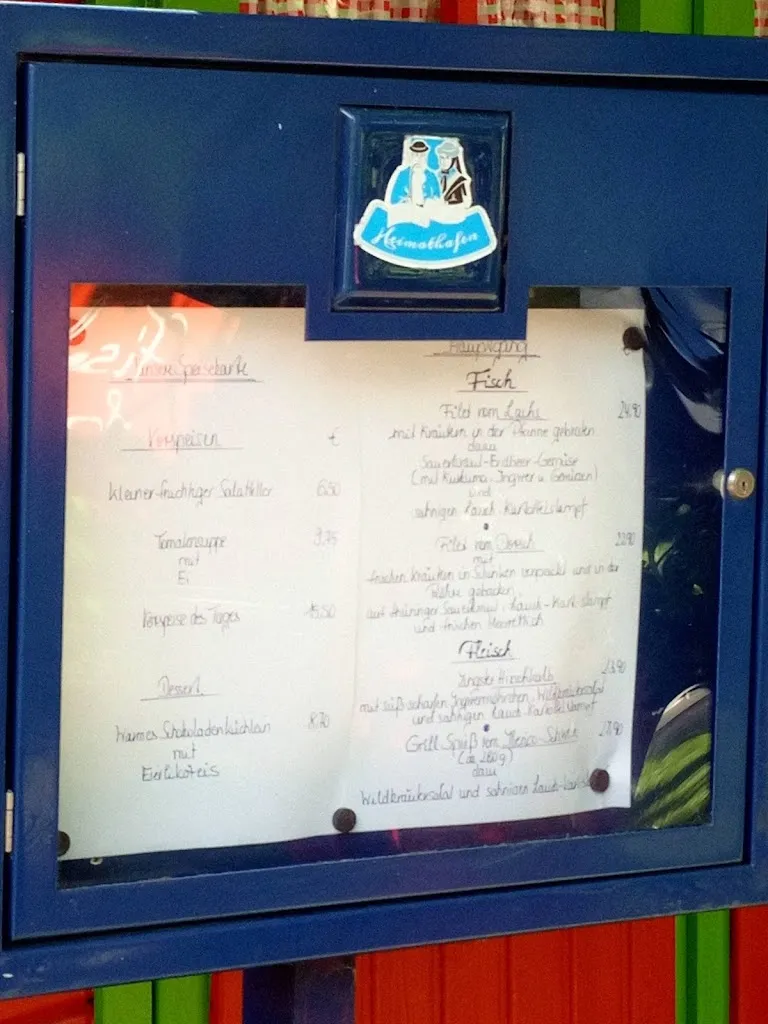 Heimathafen
Unsere Speisekarte
Vorspeisen €
kleiner fruchtiger Salatteller 6,50
Tomatensuppe 9,75
mit
Ei
Vorspeise des Tages 15,50
Dessert
Warmes Schokoladenküchlein 8,70
mit
Eierliköreis
Hauptgang
Fisch
Filet vom Lachs 24,90
mit Kräutern in der Pfanne gebraten
dazu
Sauerkraut-Erdbeer-Gemüse
(mit Kurkuma, Ingwer u. Gewürzen)
und
sahnigen Lauch-Kartoffelstampf
Filet vom Dorsch 22,90
mit
frischen Kräutern in Schinken verpackt und in der
Röhre gebacken
auf Thüringer Sauerkraut, Lauch-Kart.stampf
und frischen Meerrettich
Fleisch
Hirschkalb 23,90
mit süß-scharfen Ingwermöhrchen, Wildkräutersalat
und sahnigen Lauch-Kartoffelstampf
Grill Spieß vom 27,90
(ca. 280g)
dazu
Wildkräutersalat und sahnigen